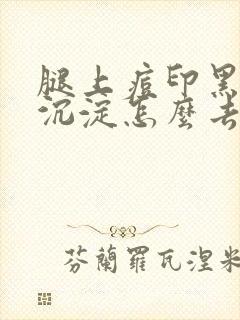 腿上痘印黑
沉淀怎麼去
芬蘭羅瓦涅米